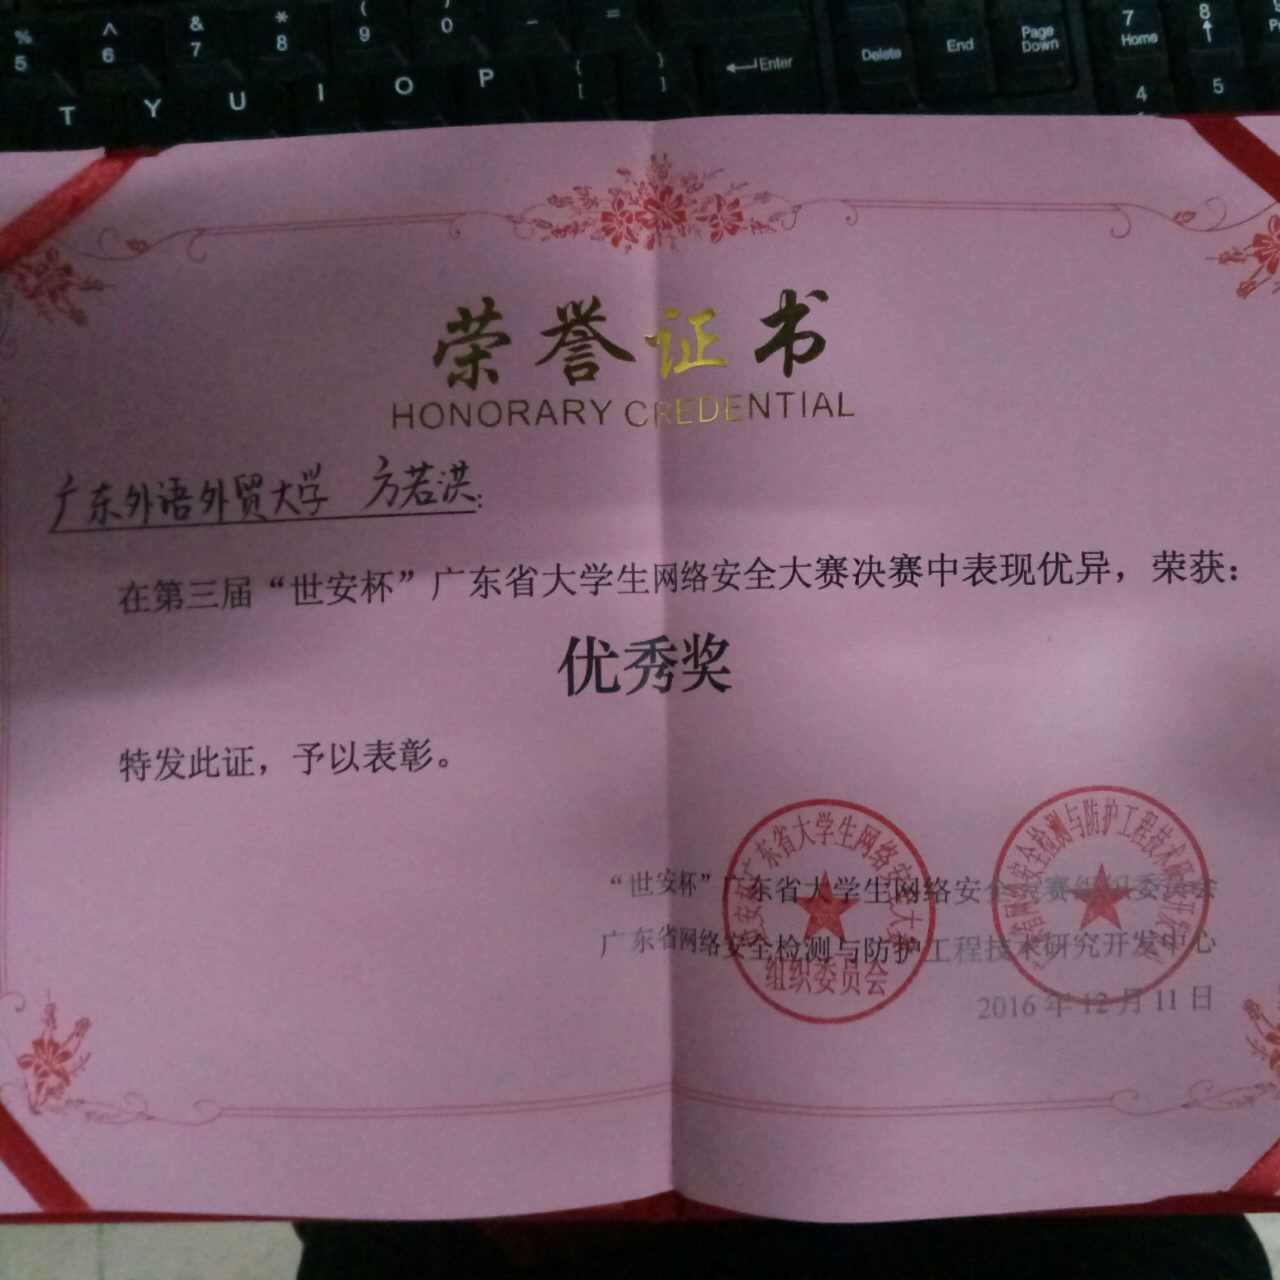 % 5
^ 6
& 7
* 8
( 9
) 0
-
=
7 Home
8
T Y U I O P { [ } ] Enter Delete End Page Down 4 5
荣誉证书
HONORARY CREDENTIAL
广东外语外贸大学 方若洪:
在第三届“世安杯”广东省大学生网络安全大赛决赛中表现优异，荣获：
优秀奖
特发此证，予以表彰。
“世安杯”广东省大学生网络安全大赛组织委员会
广东省网络安全检测与防护工程技术研究开发中心
2016 年 12 月 11 日
世安杯广东省大学生网络安全大赛
组织委员会
广东省网络安全检测与防护工程技术研究开发中心